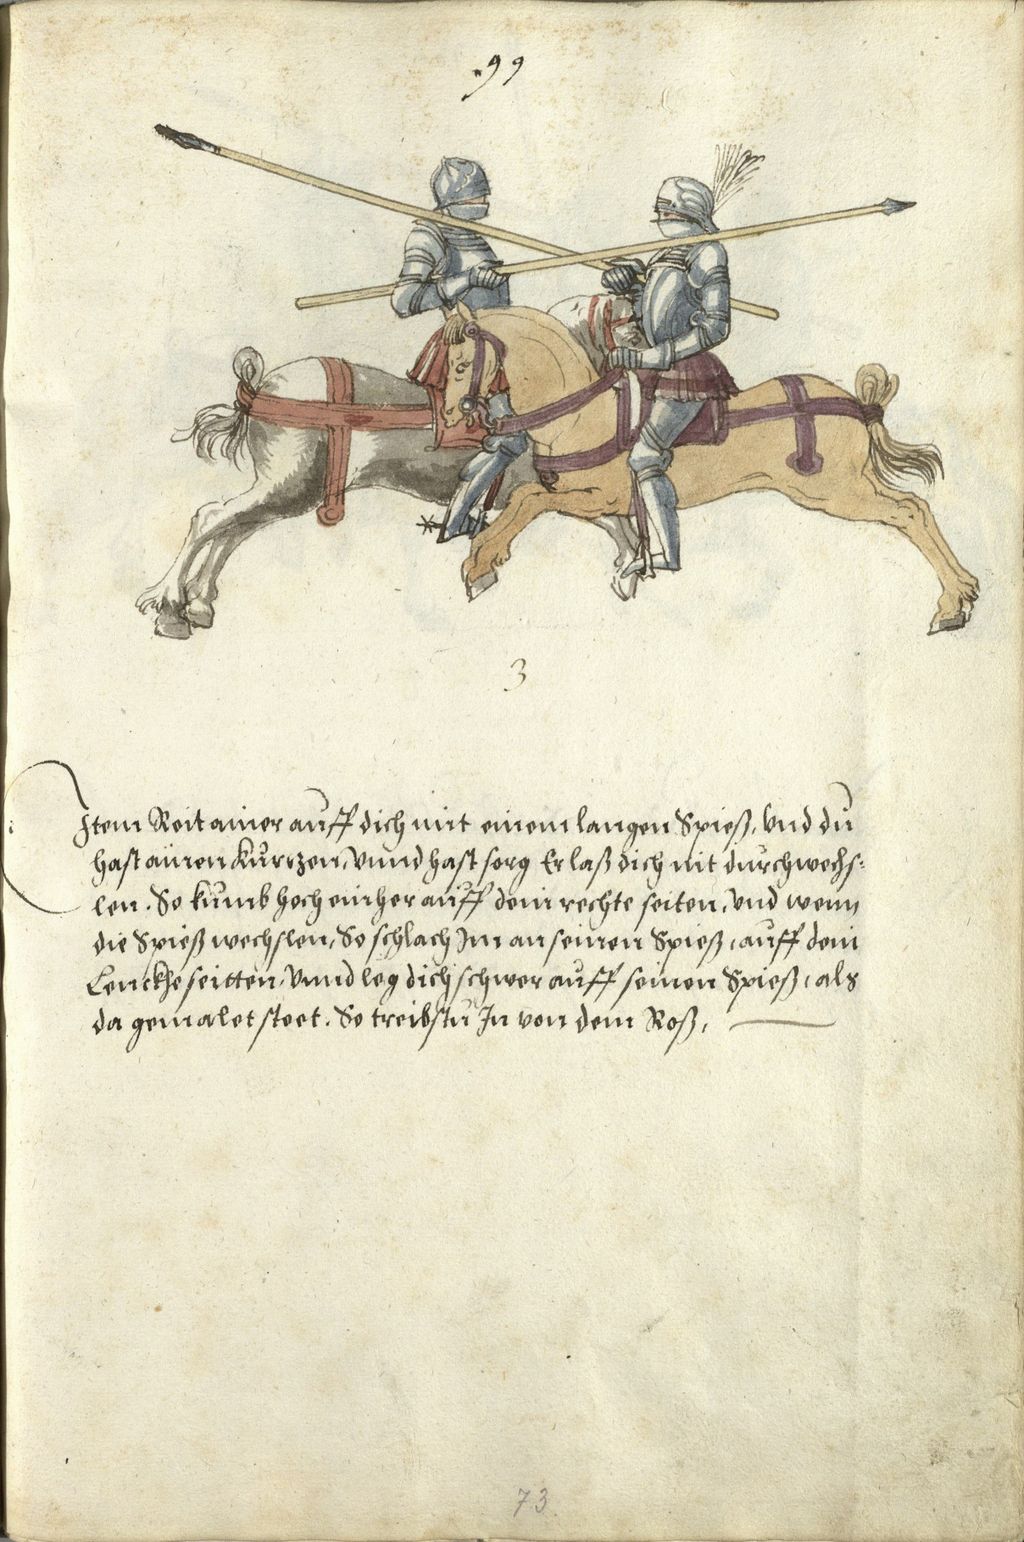 99
3
Item Reit ainer auff dich mit einem langen Spieß, vnd du
hast ainen kurtzen, vnnd hast sorg Er laß dich nit durchwechs=
len. So kumb hoch einher auff dein rechte seiten, vnd wenn
die Spieß wechslen, So schlach Im an seinen Spieß, auff dein
Lenckhe seitten, vnnd leg dich schwer auff seinen Spieß, als
da gemalet steet. So treibstu In von dem Roß,
73